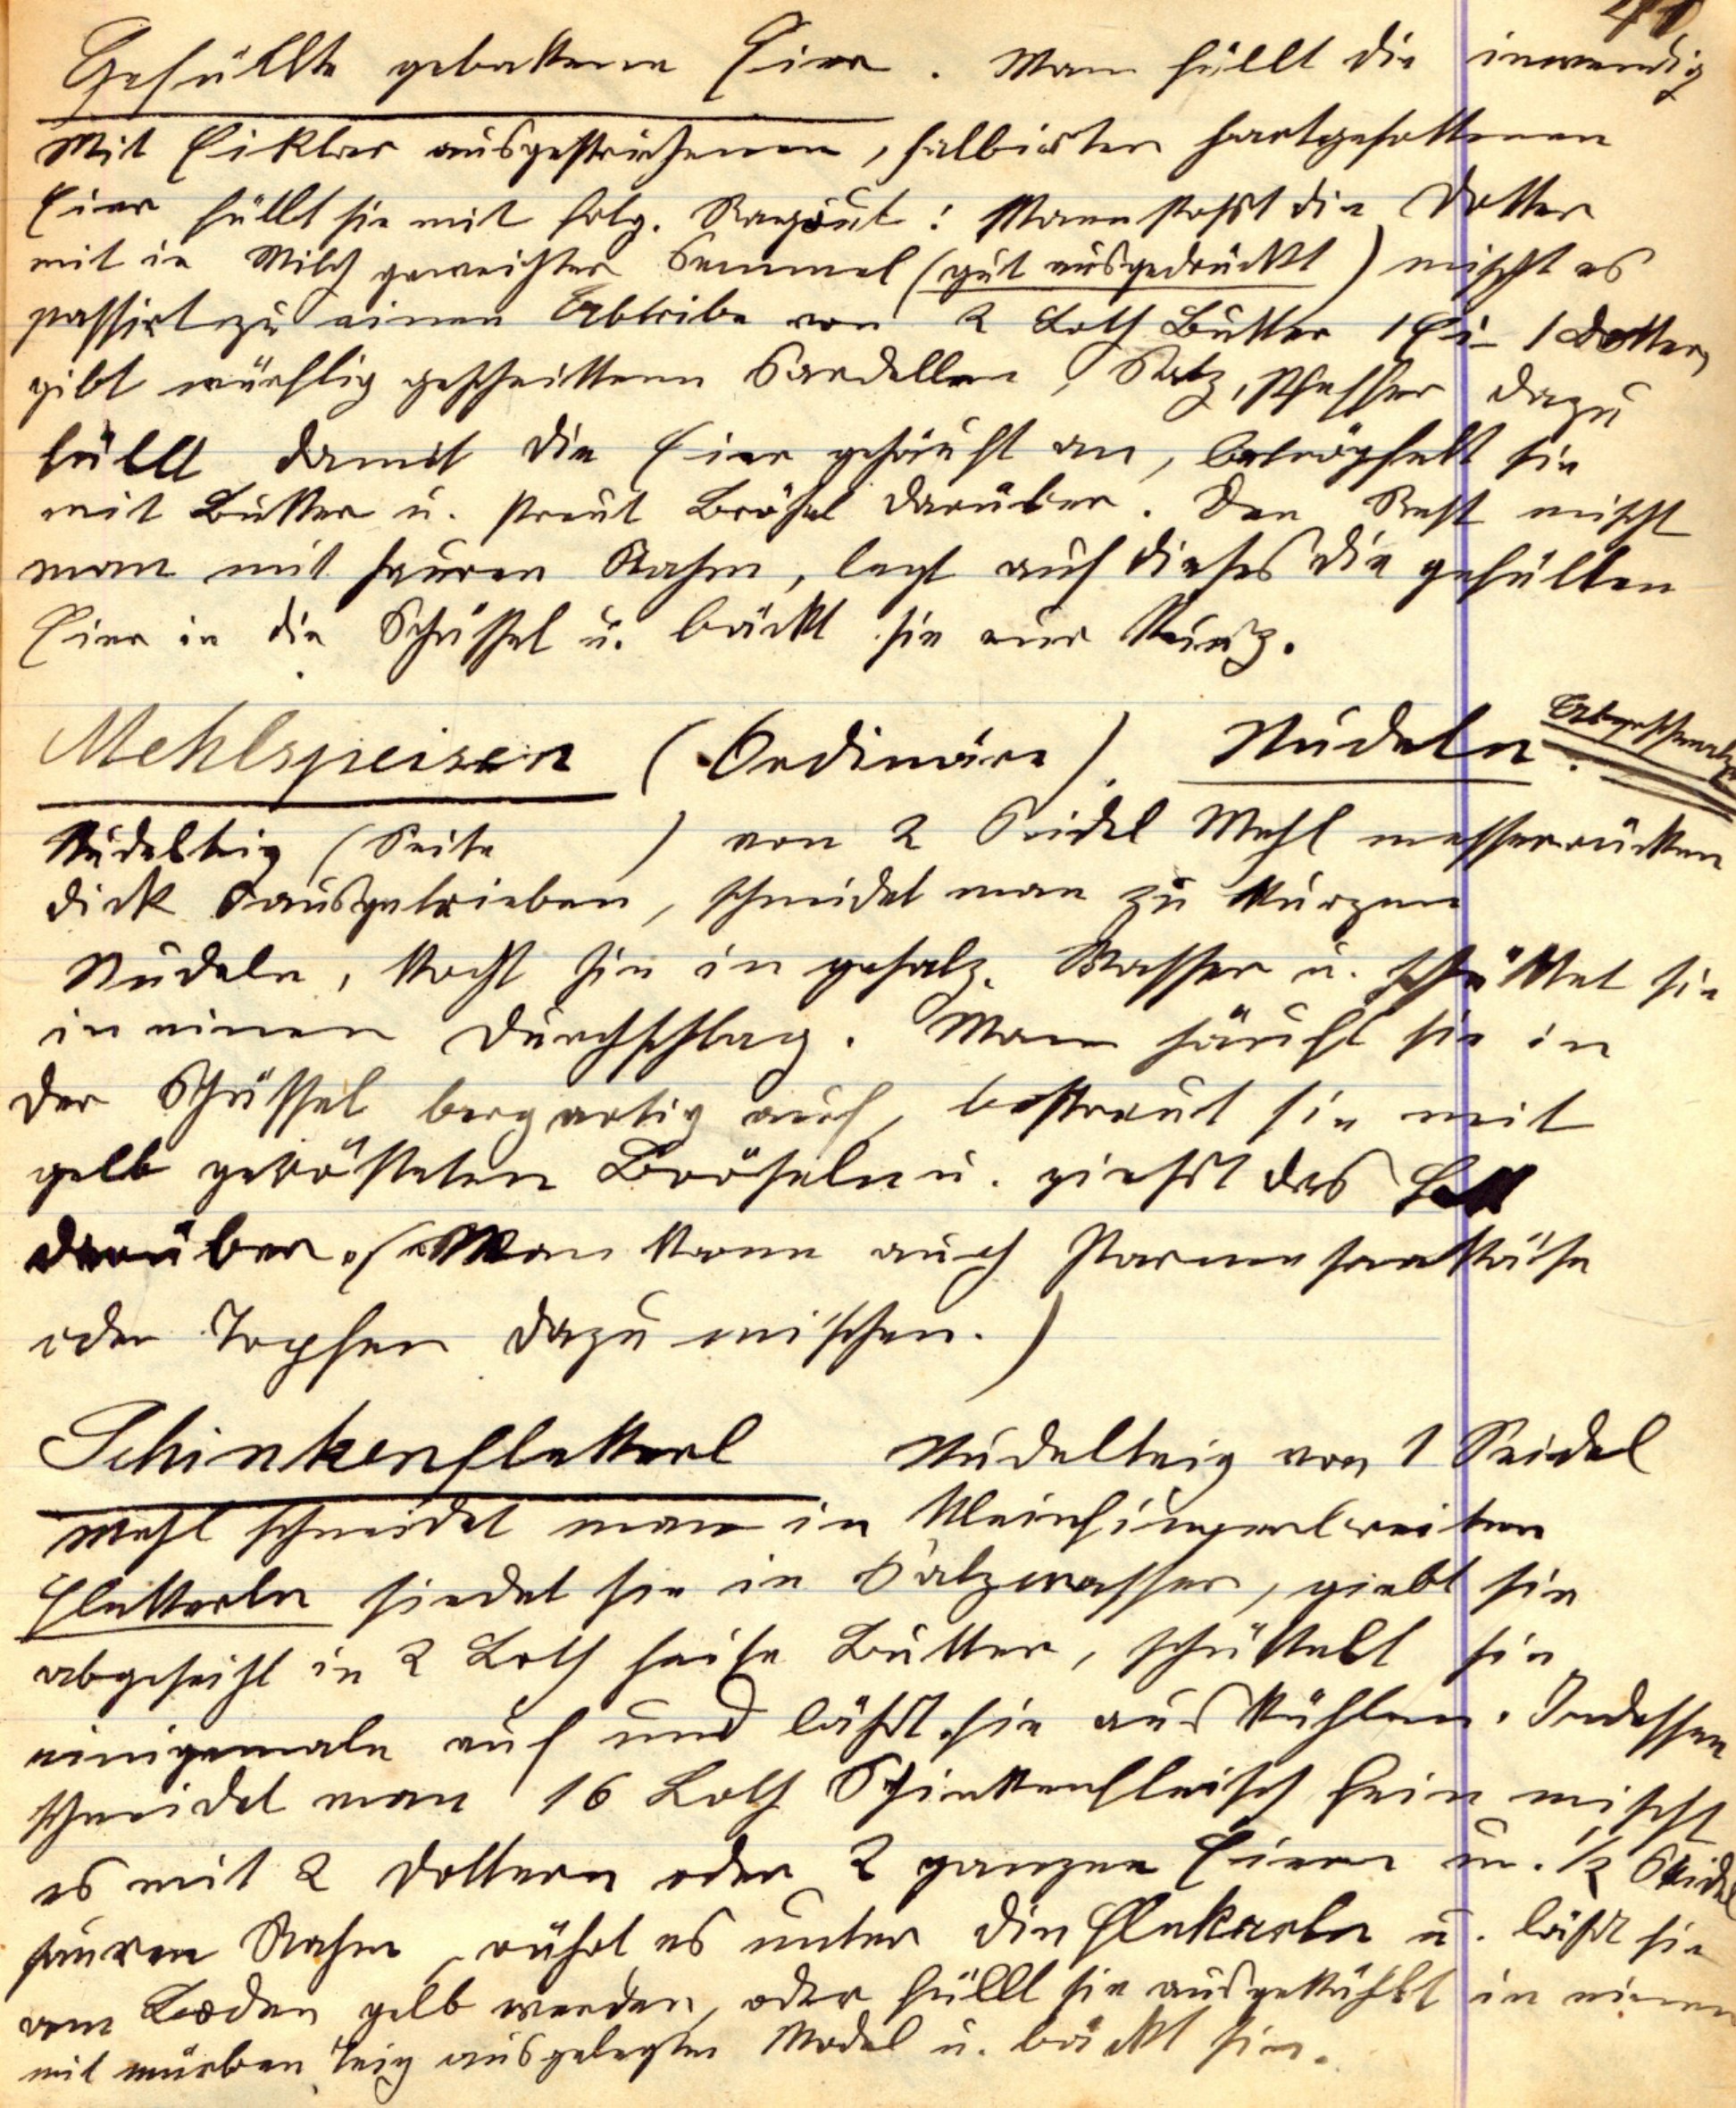 41
Gefüllte gebackene Eier. Man füllt die inwendig
mit Eiklar ausgestrichenen, halbirten hartgesottenen
Eier füllt sie mit folg. Ragout: Man stoßt die Dotter
mit in Milch geweichter Semmel (gut ausgedrückt) mischt es
passirt zu einen Abtribe von 2 Loth Butter 1 Ei 1 Dotter,
gibt würflig geschnittene Sardellen, Salz, Pfeffer dazu
füllt damit die Eier gehäuft an, betröpfelt sie
mit Butter u. streut Brösel darüber. Den Rest mischt
man mit sauren Rahm, legt auf dieses die gefüllten
Eier in die Schüssel u. bäckt sie nur kurz.
Mehlspeisen (Ordinäre). Nudeln. Abgeschmalzene
Nudelteig (Seite ) von 2 Seidel Mehl messerrücken
dick ausgetrieben, schneidet man zu kurzen
Nudeln, kocht sie in gesalz. Wasser u. schüttet sie
in einen Durchschlag. Man häuft sie in
der Schüssel bergartig auf, bestreut sie mit
gelb gerösteten Bröseln u. gießt das Fett
darüber. (Man kann auch Parmesankäse
oder Topfen dazu mischen.)
Schinkenfleckerl Nudelteig von 1 Seidel
Mehl schneidet man in kleinfingerbreiten
Fleckerln siedet sie in Salzwasser, giebt sie
abgeseiht in 2 Loth heiße Butter, schüttelt sie
einigemale auf und läßt sie auskühlen. Indessen
schneidet man 16 Loth Schinkenfleisch fein mischt
es mit 2 Dottern oder 2 ganzen Eiern u. 1/2 Seidel
sauren Rahm, rührt es unter die Flekerln u. läßt sie
am Boden gelb werden, oder füllt sie ausgekühlt in einen
mit mürben Teig ausgelegten Model u. bäckt sie.